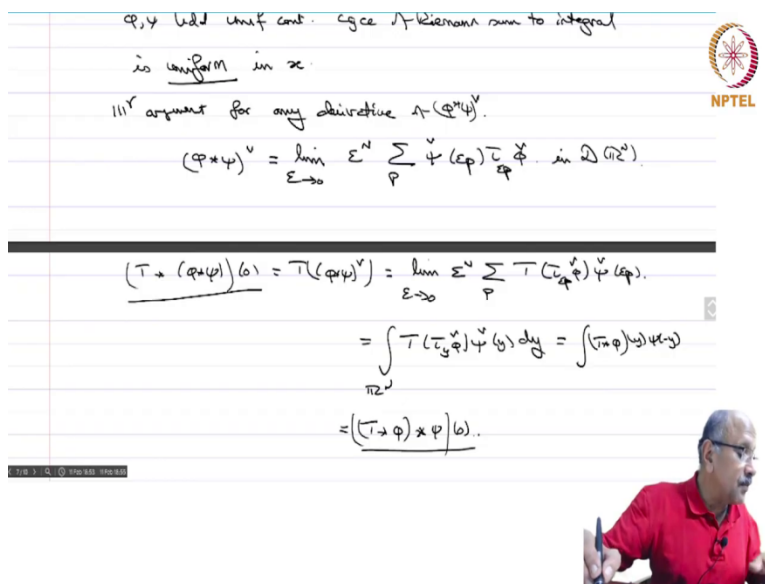 φ, ψ bdd unif cont. cgce of Riemann sum to integral
is uniform in x.
III^r argument for any derivative of (φ*ψ)^∨.
(φ*ψ)^∨ = lim_{ε→0} ε^N Σ_p ψ̌(εp) τ_{εp} φ̌. in D(ℝ^N).
NPTEL
(T * (φ*ψ))(0) = T((φ*ψ)^∨) = lim_{ε→0} ε^N Σ_p T(τ_{εp} φ̌) ψ̌(εp).
= ∫_{ℝ^N} T(τ_y φ̌) ψ̌(y) dy = ∫(T*φ)(y) ψ(-y)
= ((T*φ)*ψ)(0)..
7/10